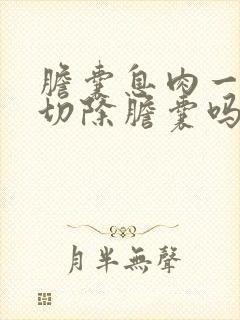 膽囊息肉一
切除膽囊嗎
月半無聲